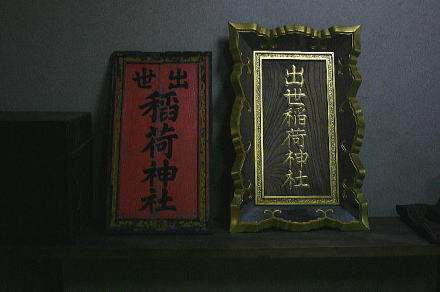 出世
稲荷神社
出世稲荷神社